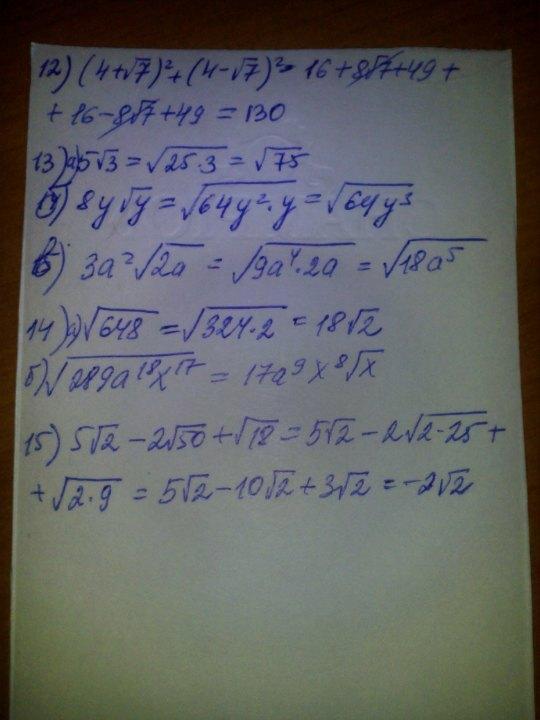 12) (4+√7)²+(4-√7)²= 16+8√7+49+
+16-8√7+49 = 130
13) а) 5√3 = √25·3 = √75
8y√y = √64y²·y = √64y³
в) 3a²√2a = √9a⁴·2a = √18a⁵
14) а) √648 = √324·2 = 18√2
б) √289a¹⁸x¹⁷ = 17a⁹x⁸√x
15) 5√2-2√50+√18=5√2-2√2·25+
+√2·9 = 5√2-10√2+3√2 =-2√2